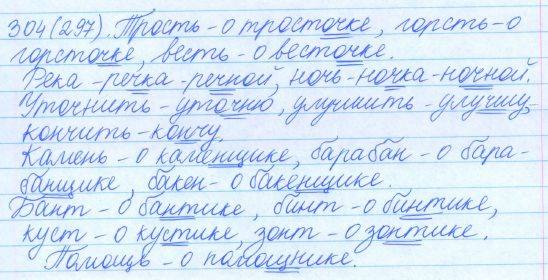 304(297). Трость - о тросточке, горсть - о
горсточке, весть - о весточке.
Река - речка - речной, ночь - ночка - ночной.
Уточнить - уточню, улучшить - улучшу,
кончить - кончу.
Камень - о каменщике, барабан - о бара-
банщике, бакен - о бакенщике.
Бант - о бантике, бинт - о бинтике,
куст - о кустике, зонт - о зонтике.
Помощь - о помощнике.